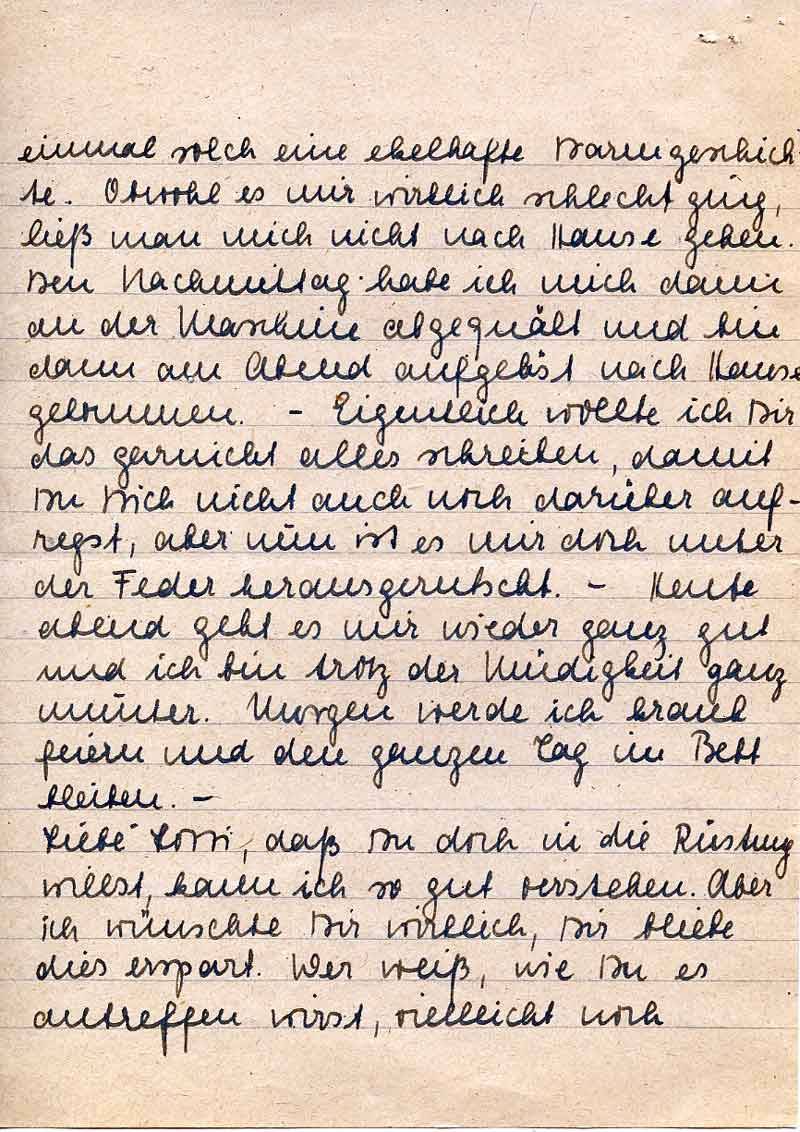 einmal solch eine ekelhafte Darmgeschich-
te. Obwohl es mir wirklich schlecht ging,
ließ man mich nicht nach Hause gehen.
Den Nachmittag habe ich mich dann
an der Maschine abgequält und bin
dann am Abend aufgelöst nach Hause
gekommen. – Eigentlich wollte ich Dir
das garnicht alles schreiben, damit
Du Dich nicht auch noch darüber auf-
regst, aber nun ist es mir doch unter
der Feder herausgerutscht. – Heute
abend geht es mir wieder ganz gut
und ich bin trotz der Müdigkeit ganz
munter. Morgen werde ich krank
feiern und den ganzen Tag im Bett
bleiben. –
Liebe Lotti, daß Du doch in die Rüstung
willst, kann ich so gut verstehen. Aber
ich wünschte Dir wirklich, Dir bliebe
dies erspart. Wer weiß, wie Du es
antreffen wirst, vielleicht noch